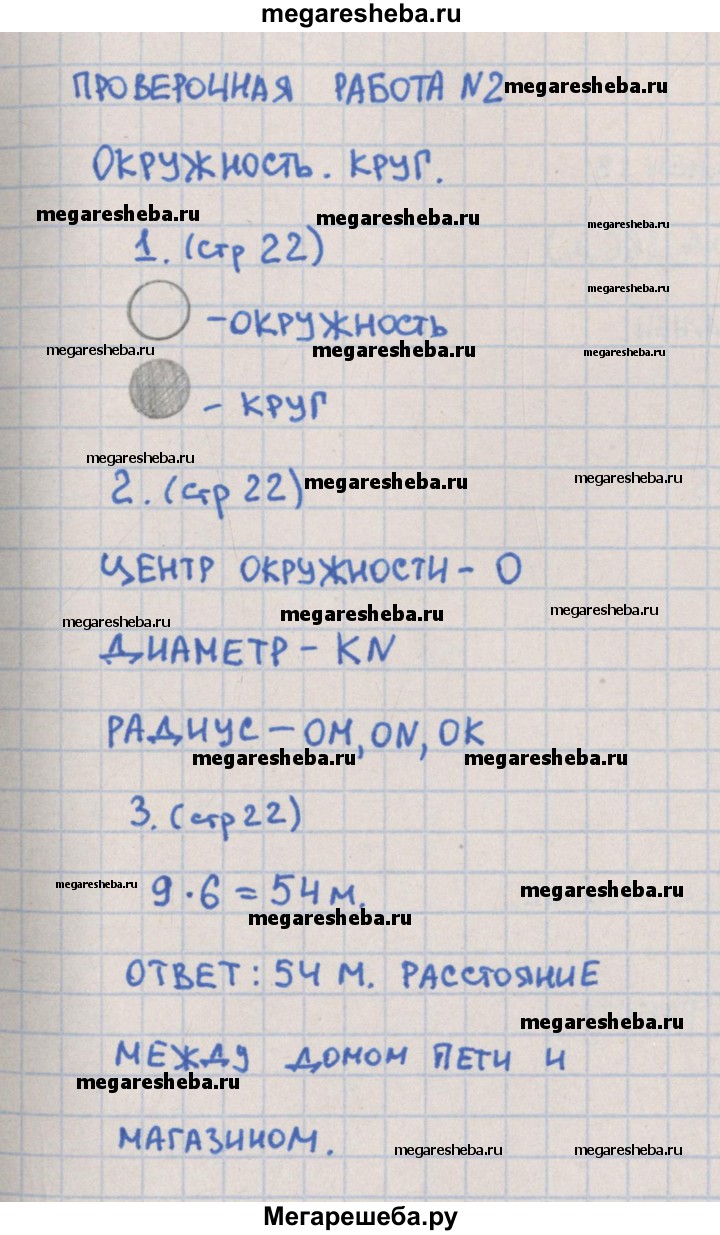 megaresheba.ru
ПРОВЕРОЧНАЯ РАБОТА N2 megaresheba.ru
ОКРУЖНОСТЬ. КРУГ.
megaresheba.ru megaresheba.ru megaresheba.ru
1. (стр 22)
megaresheba.ru
– ОКРУЖНОСТЬ
megaresheba.ru megaresheba.ru megaresheba.ru
– КРУГ
megaresheba.ru
2. (стр 22) megaresheba.ru megaresheba.ru
ЦЕНТР ОКРУЖНОСТИ – О
megaresheba.ru megaresheba.ru megaresheba.ru
ДИАМЕТР – KN
РАДИУС – ОМ, ON, ОК
megaresheba.ru megaresheba.ru
3. (стр 22)
megaresheba.ru 9 · 6 = 54 м. megaresheba.ru
megaresheba.ru
ОТВЕТ: 54 М. РАССТОЯНИЕ
megaresheba.ru
МЕЖДУ ДОМОМ ПЕТИ И
megaresheba.ru
МАГАЗИНОМ. megaresheba.ru megaresheba.ru
Мегарешеба.ру